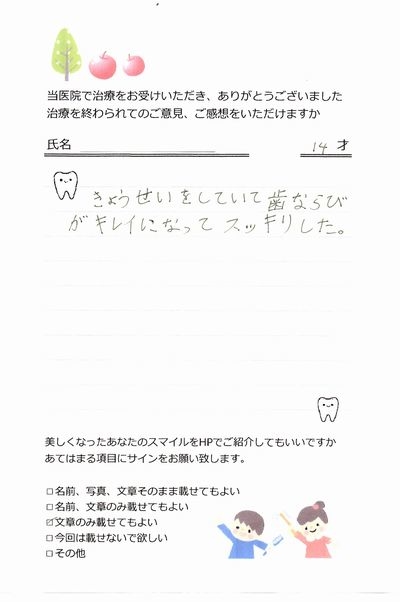 当医院で治療をお受けいただき、ありがとうございました
治療を終わられてのご意見、ご感想をいただけますか
氏名 14 才
きょうせいをしていて歯ならび
がキレイになって スッキリした。
美しくなったあなたのスマイルをHPでご紹介してもいいですか
あてはまる項目にサインをお願い致します。
□名前、写真、文章そのまま載せてもよい
□名前、文章のみ載せてもよい
☑文章のみ載せてもよい
□今回は載せないで欲しい
□その他